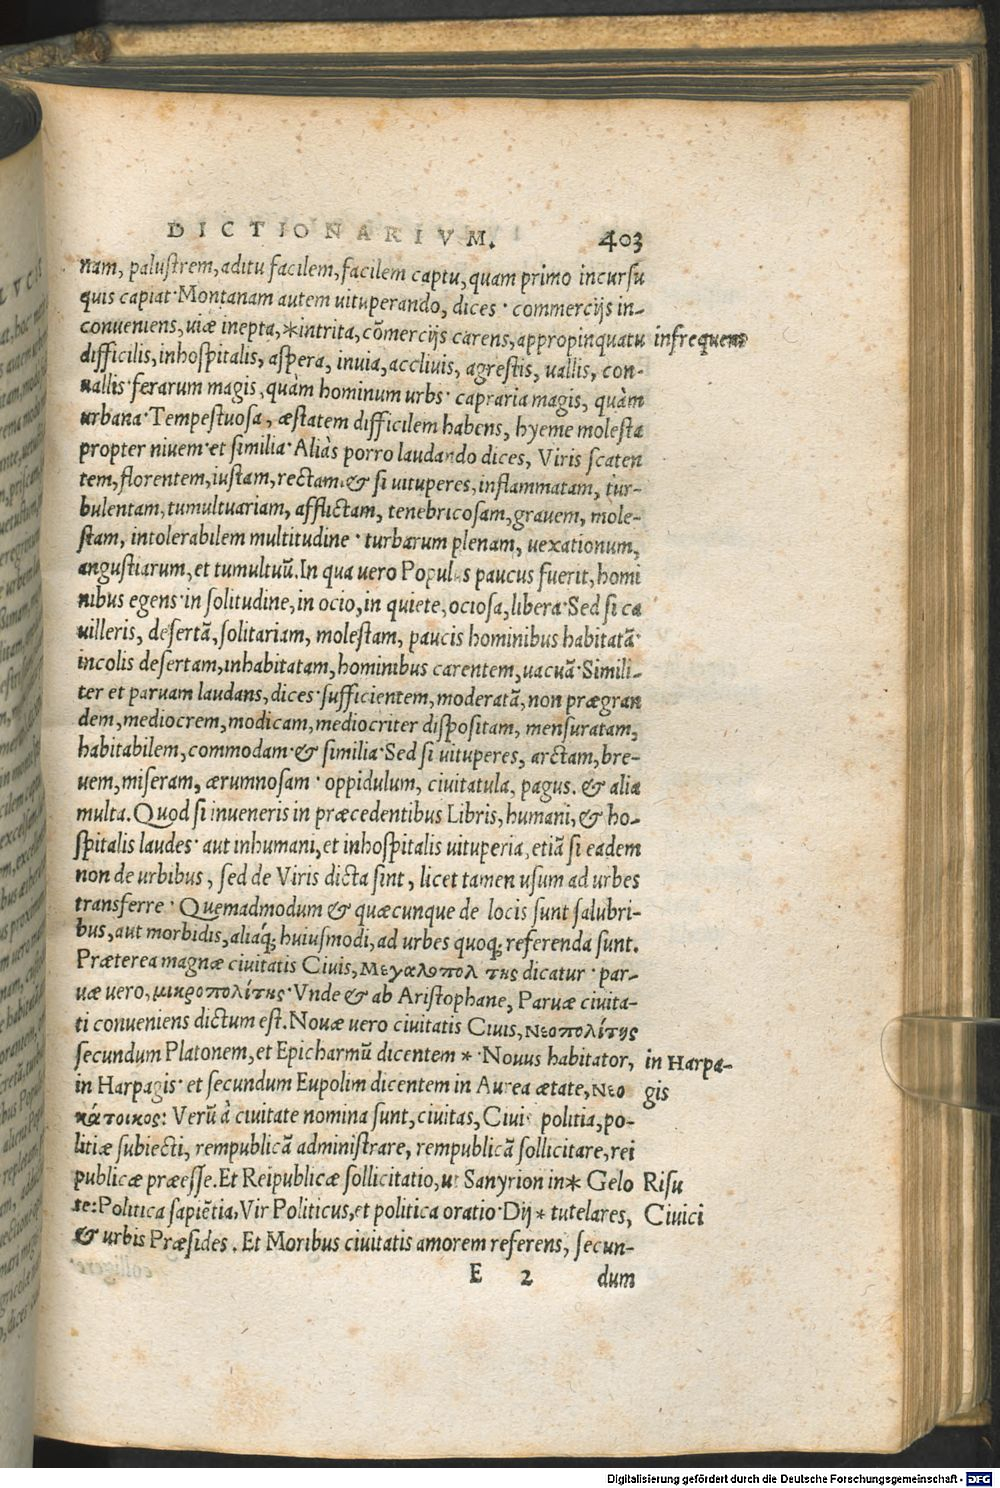 DICTIONARIVM. 403
nam, palustrem, aditu facilem, facilem captu, quam primo incursu
quis capiat· Montanam autem uituperando, dices · commercijs in-
conueniens, uiæ inepta, *intrita, cōmercijs carens, appropinquatu infrequens
difficilis, inhospitalis, aspera, inuia, accliuis, agrestis, uallis, con-
uallis· ferarum magis, quàm hominum urbs· capraria magis, quàm
urbana· Tempestuosa, æstatem difficilem habens, hyeme molesta
propter niuem· et similia· Aliàs porro laudando dices, Viris scaten
tem, florentem, iustam, rectam. & si uituperes, inflammatam, tur-
bulentam, tumultuariam, afflictam, tenebricosam, grauem, mole-
stam, intolerabilem multitudine · turbarum plenam, uexationum,
angustiarum, et tumultuū. In qua uero Populus paucus fuerit, homi
nibus egens· in solitudine, in ocio, in quiete, ociosa, libera· Sed si ca
uilleris, desertā, solitariam, molestam, paucis hominibus habitatā·
incolis desertam, inhabitatam, hominibus carentem, uacuā· Simili-
ter et paruam laudans, dices· sufficientem, moderatā, non prægran
dem, mediocrem, modicam, mediocriter dispositam, mensuratam,
habitabilem, commodam· & similia· Sed si uituperes, arctam, bre-
uem, miseram, ærumnosam · oppidulum, ciuitatula, pagus. & alia
multa. Quod si inueneris in præcedentibus Libris, humani, & ho-
spitalis laudes· aut inhumani, et inhospitalis uituperia, etiā si eadem
non de urbibus, sed de Viris dicta sint, licet tamen usum ad urbes
transferre · Quemadmodum & quæcunque de locis sunt salubri-
bus, aut morbidis, aliaq́; huiusmodi, ad urbes quoq; referenda sunt.
Præterea magnæ ciuitatis Ciuis, Μεγαλοπολ της dicatur · par-
uæ uero, μικροπολίτης· Vnde & ab Aristophane, Paruæ ciuita-
ti conueniens dictum est. Nouæ uero ciuitatis Ciuis, Νεοπολίτης
secundum Platonem, et Epicharmū dicentem * · Nouus habitator, in Harpa-
in Harpagis· et secundum Eupolim dicentem in Aurea ætate, Νεο gis
κάτοικος: Verū à ciuitate nomina sunt, ciuitas, Ciuis politia, po-
litiæ subiecti, rempublicā administrare, rempublicā sollicitare, rei
publicæ præesse. Et Reipublicæ sollicitatio, ut Sanyrion in * Gelo Risu
te: Politica sapiētia, Vir Politicus, et politica oratio· Dij * tutelares, Ciuici
& urbis Præsides. Et Moribus ciuitatis amorem referens, secun-
E 2 dum
Digitalisierung gefördert durch die Deutsche Forschungsgemeinschaft - DFG